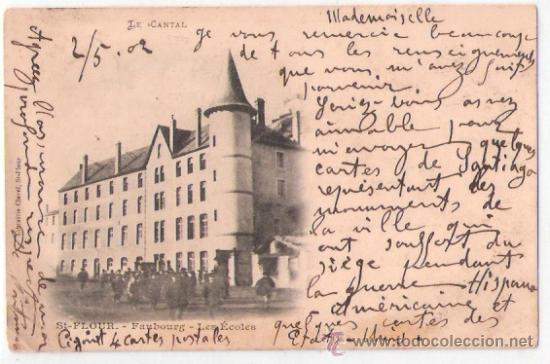 LE CANTAL
2/5. 02
Mademoiselle
Je vous remercie beaucoup
de tous les renseignements
que vous m'avez fait
parvenir.
Seriez-vous assez
aimable pour
m'envoyer quelques
cartes de Santiago
représentant des
monuments de
la ville qui
ont souffert du
siège pendant
la guerre Hispano
américaine et
quelques cartes des
Etats-Unis
Ci-joint 4 cartes postales
Agréez
St-FLOUR. - Faubourg - Les Ecoles
todocoleccion.net